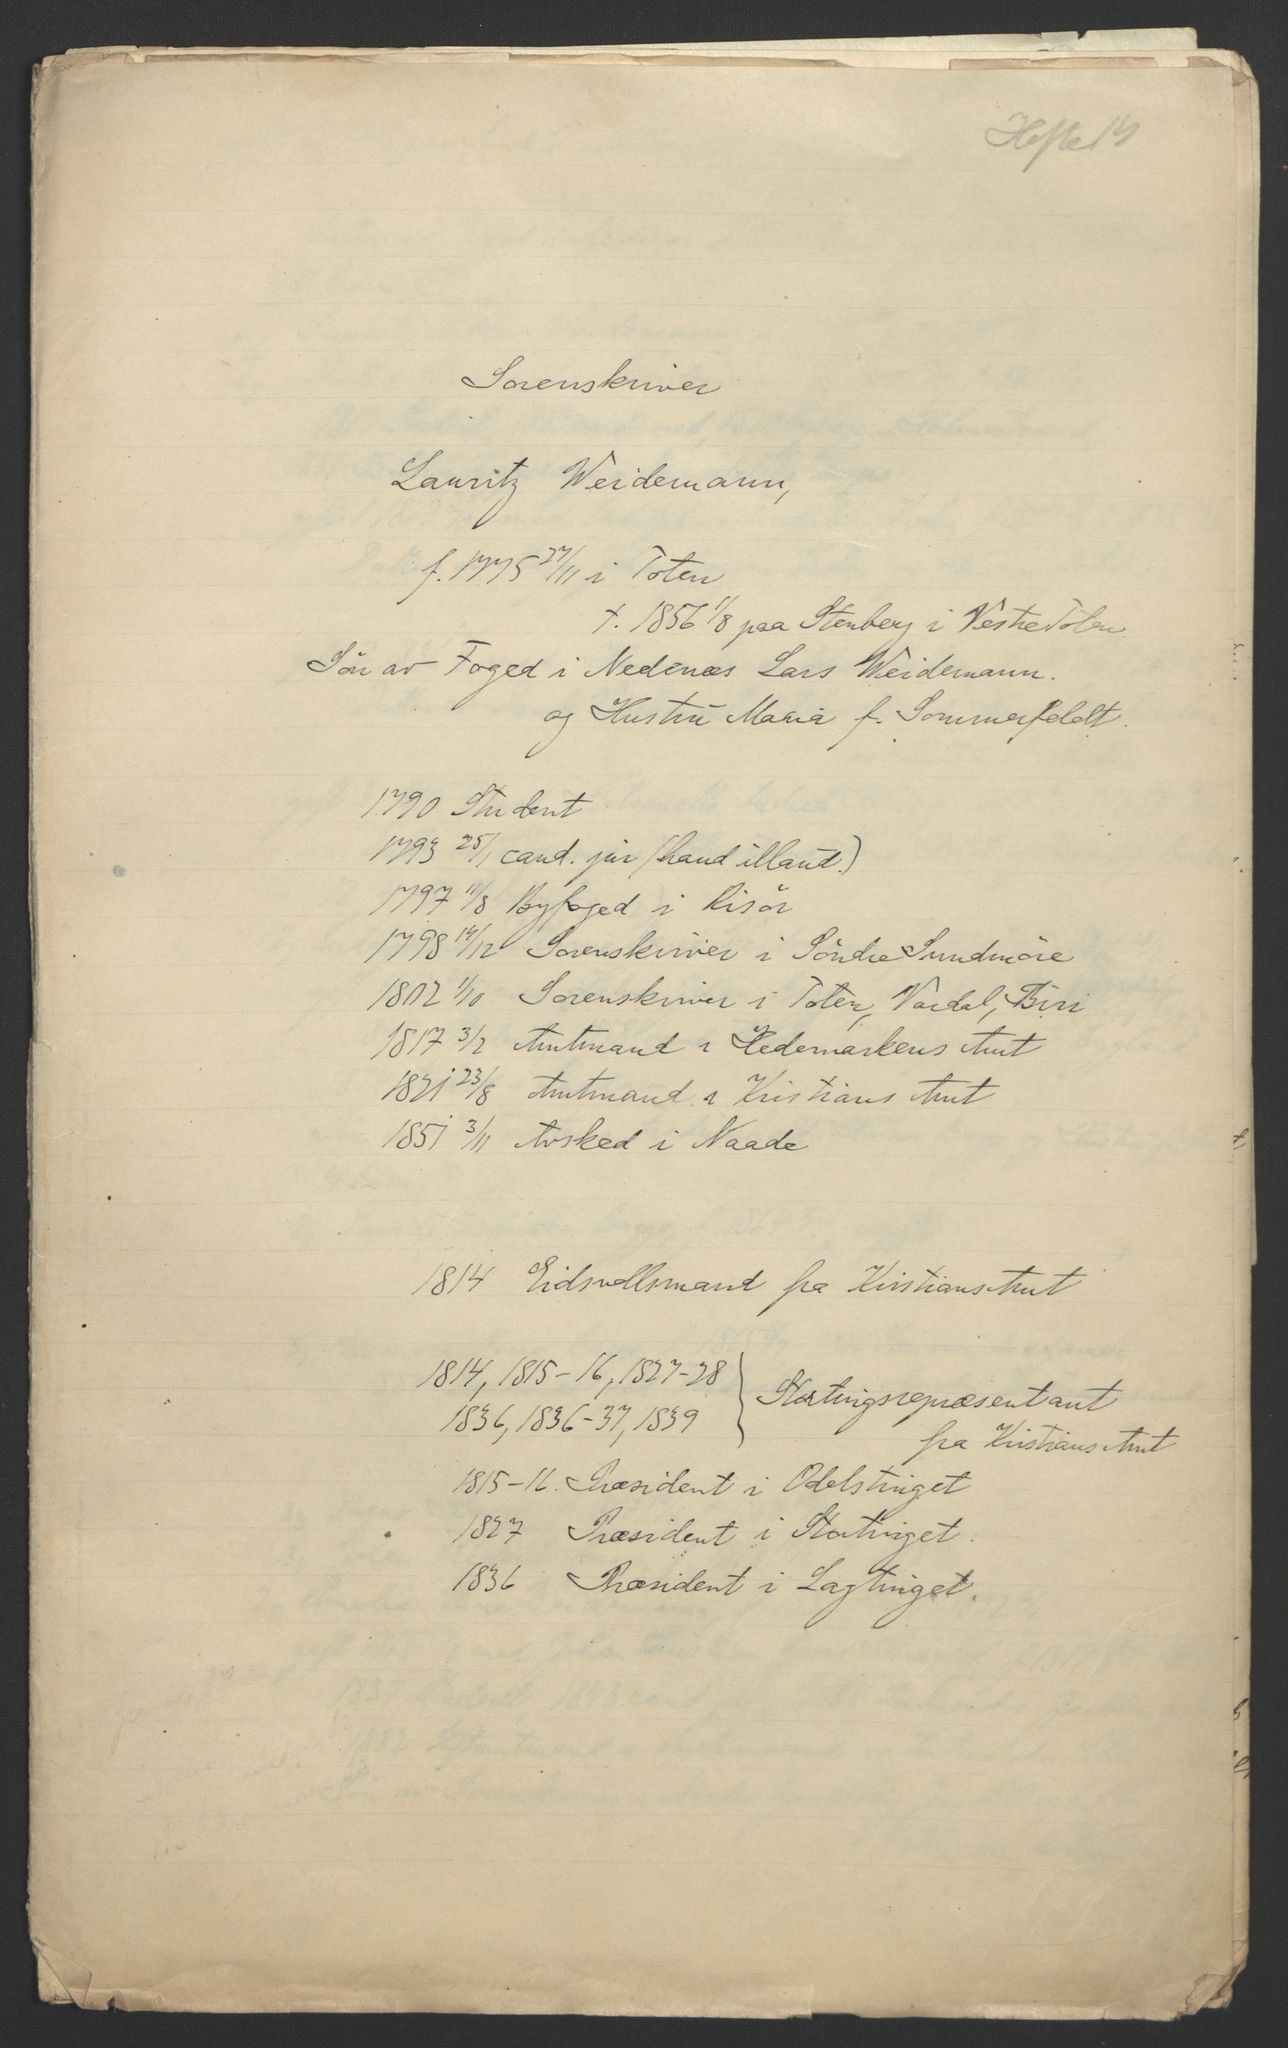 Hefte
Sorenskriver
Lauritz Weidemann,
f. 1775 27/11 i Toten
†. 1856 1/8 paa Stenberg i Vestre Toten
Sön av Foged i Nedenæs Lars Weidemann.
og Hustru Maria f. Sommerfeldt.
1790 Student
1793 25/1 cand. jur (haud illaud.)
1797 11/8 Byfoged i Risör
1798 14/12 Sorenskriver i Söndre Sundmöre
1802 1/10 Sorenskriver i Toten, Vardal, Biri
1817 3/2 Amtmand i Hedemarkens Amt
1821 23/8 Amtmand i Kristians Amt
1851 3/11 Avsked i Naade
1814 Eidsvollsmand fra Kristians Amt
1814, 1815-16, 1827-28
1836, 1836-37, 1839 } Stortingsrepræsentant
fra Kristians Amt
1815-16. Præsident i Odelstinget
1827 Præsident i Stortinget.
1836 Præsident i Lagtinget.